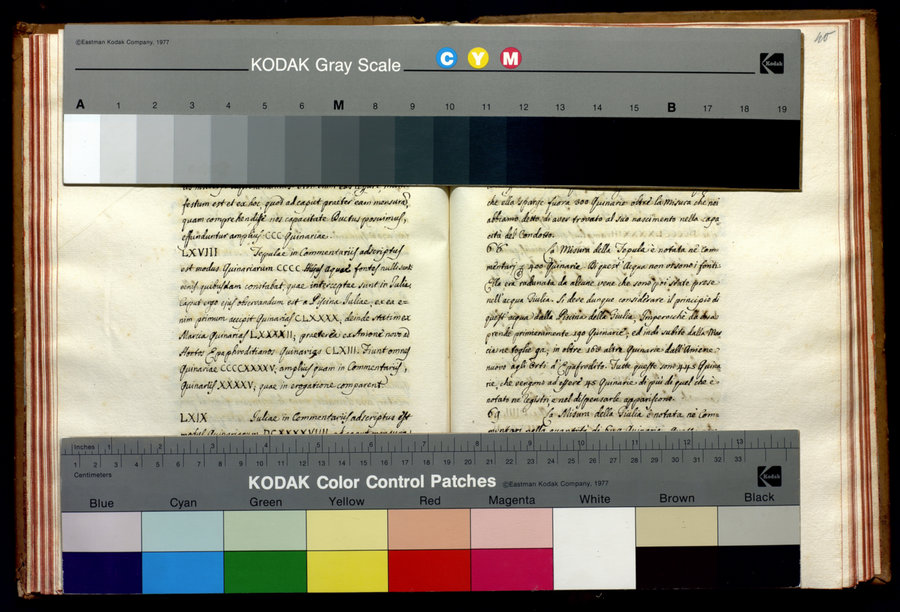 ©Eastman Kodak Company, 1977
KODAK Gray Scale
C Y M
Kodak
A 1 2 3 4 5 6 M 8 9 10 11 12 13 14 15 B 17 18 19
festum est et ex hoc, quod ad caput praeter eam mensuram,
quam comprehendisse nos capacitate Ductus posuimus,
effunduntur amplius CCC Quinariae.
LXVIII Tepulae in Commentariis adscriptus
est modus Quinariarum CCCC. Huius aquae fontes nulli sunt
venis quibusdam constabat, quae interceptae sunt in Julia.
Caput ergo ejus observandum est a Piscina Juliae, ex ea e-
nim primum accipit Quinarias CLXXXX, deinde statim ex
Marcia Quinarias LXXXXII, praeterea ex Anione novo ad
Hortos Epaphroditianos Quinarias CLXIII. Fiunt omnes
Quinariae CCCCXXXXV, amplius quam in Commentariis,
Quinariis XXXXV, quae in erogatione comparent
LXIX Juliae in Commentariis adscriptus est
che ella sparse fuora 300 Quinarie oltre la Misura che noi
abbiamo detto di aver trovato al suo nascimento nella capa
cità del Condotto.
68 La Misura della Tepula è notata ne Com-
mentari 400 Quinarie. Di quest' Acqua non vi sono i fonti.
Ella era radunata da alcune vene che sono poi state prese
nell' acqua Giulia. Si deve dunque considerare il principio di
quest' acqua dalla Piscina della Giulia. Imperochè da
prende primieramente 190 Quinarie, ed indi subito dalla Mar
cia ne toglie 92, in oltre 163 altre Quinarie dall' Aniene
nuovo agli Orti d'Epafrodito. Tutte queste sono 445 Quina
rie, che vengono ad essere 45 Quinarie di più di quel che è
notato ne legistri e nel dispensarle appariscono.
69 La Misura della Giulia è notata ne Com
Inches 1 2 3 4 5 6 7 8 9 10 11 12 13
1 2 3 4 5 6 7 8 9 10 11 12 13 14 15 16 17 18 19 20 21 22 23 24 25 26 27 28 29 30 31 32 33
Centimeters
KODAK Color Control Patches ©Eastman Kodak Company, 1977
Kodak
Blue Cyan Green Yellow Red Magenta White Brown Black